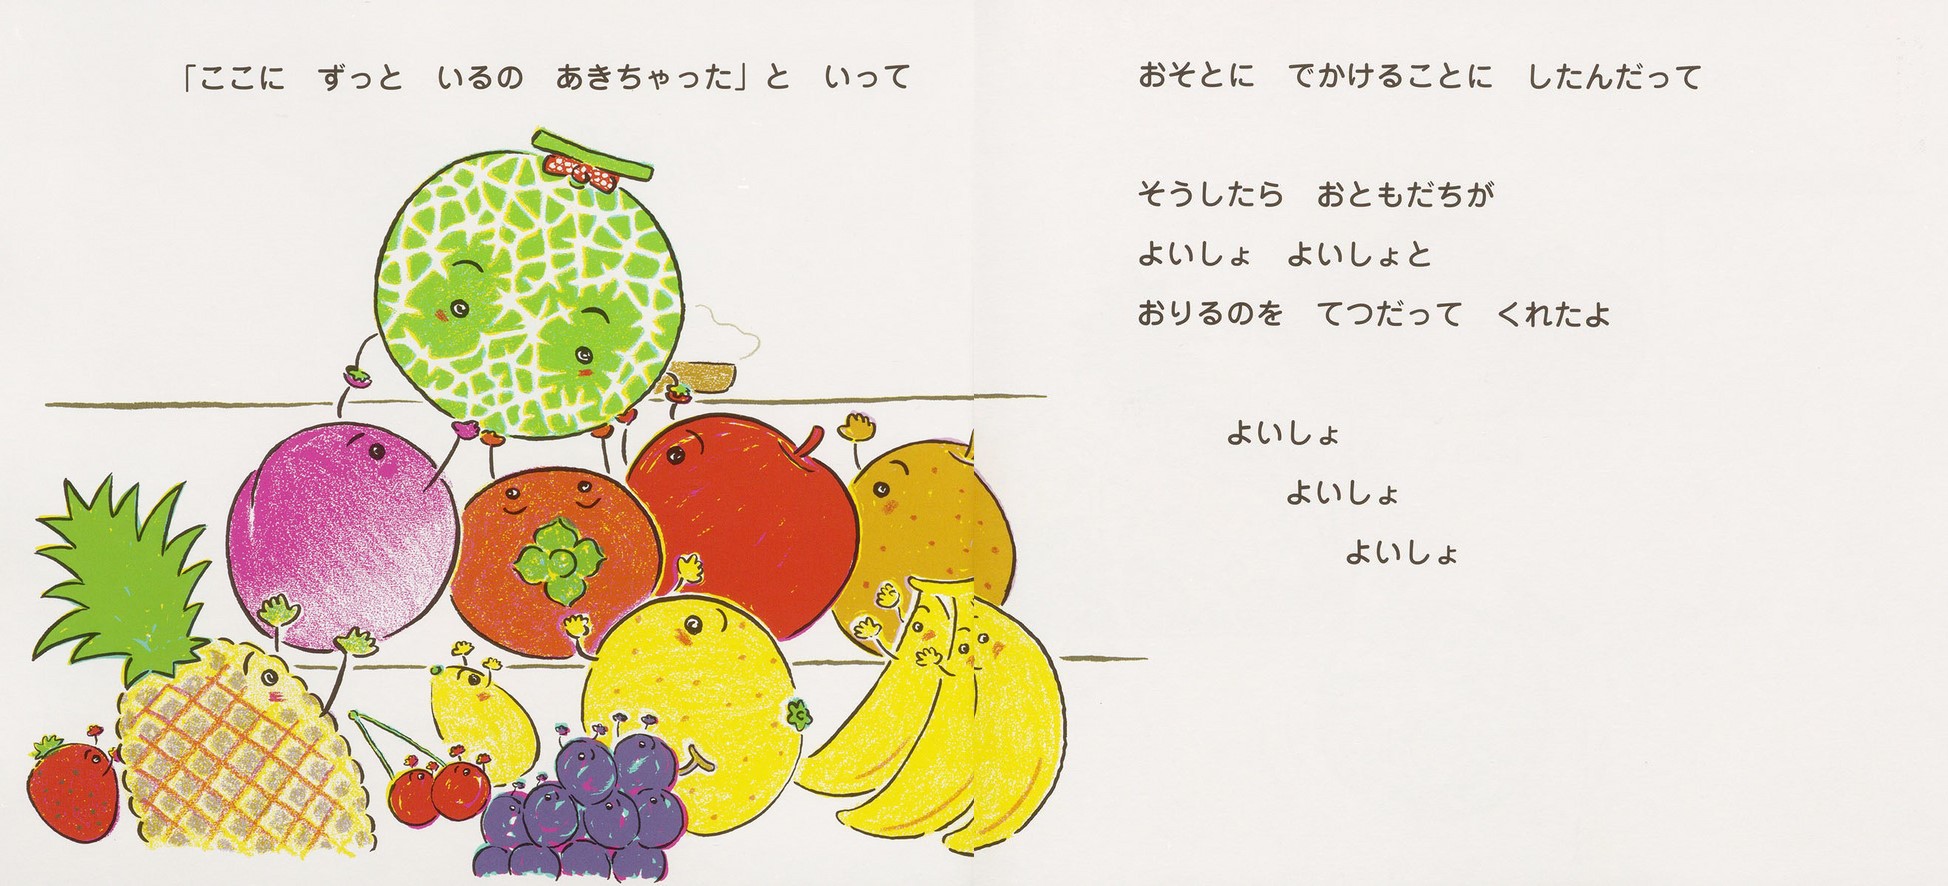 「ここに　ずっと　いるの　あきちゃった」と　いって
おそとに　でかけることに　したんだって
そうしたら　おともだちが
よいしょ　よいしょと
おりるのを　てつだって　くれたよ
よいしょ
よいしょ
よいしょ